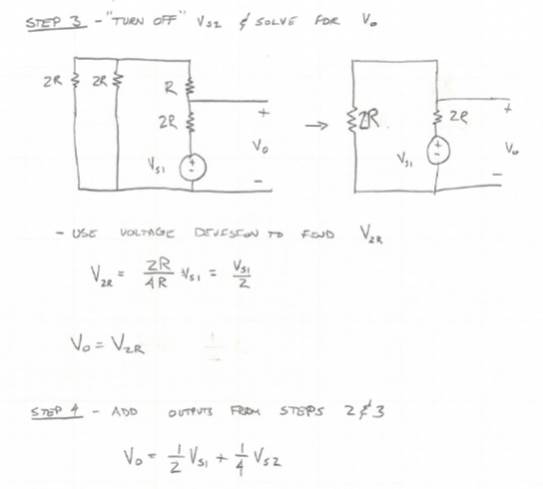 STEP 3 - "TURN OFF" VS2 & SOLVE FOR Vo
2R 2R R
2R
VS1
+
Vo
-
→
2R
2R
VS1
+
Vo
-
- USE VOLTAGE DIVISION TO FIND V2R
V2R = 2R/4R VS1 = VS1/2
Vo = V2R
STEP 4 - ADD OUTPUTS FROM STEPS 2 & 3
Vo = 1/2 VS1 + 1/4 VS2